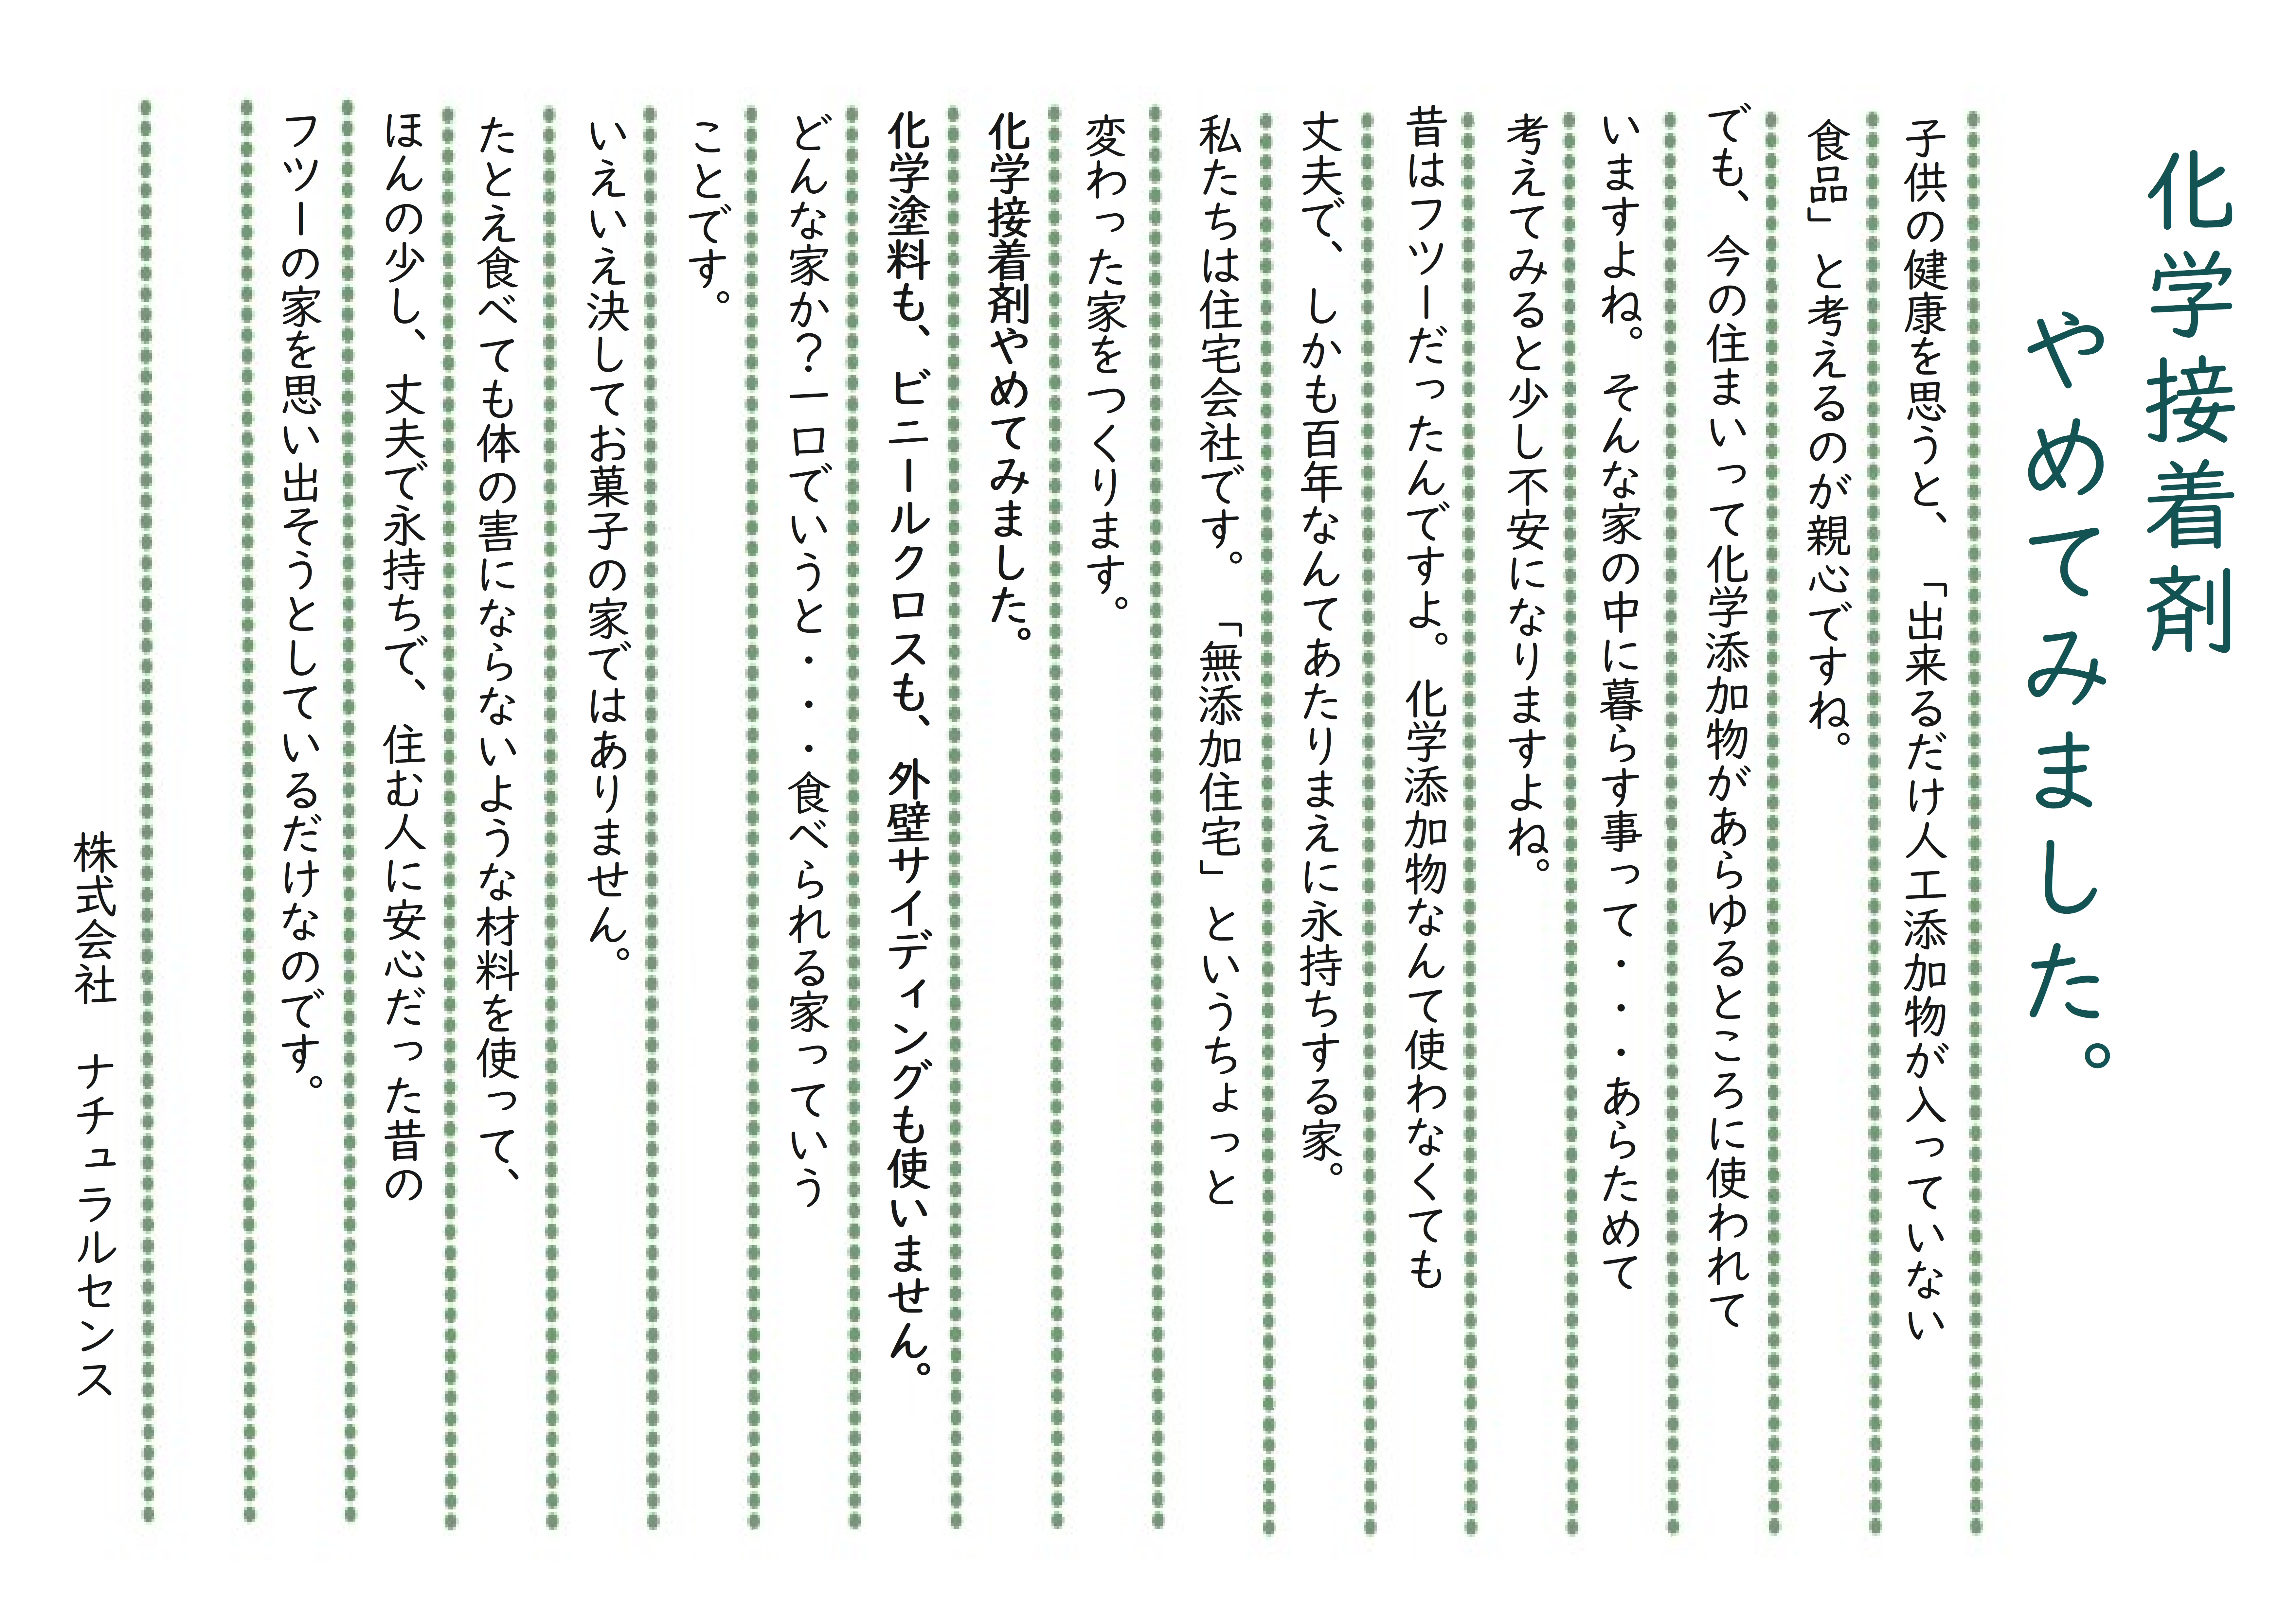 化学接着剤
やめてみました。
子供の健康を思うと、「出来るだけ人工添加物が入っていない
食品」と考えるのが親心ですね。
でも、今の住まいって化学添加物があらゆるところに使われて
いますよね。そんな家の中に暮らす事って・・・あらためて
考えてみると少し不安になりますよね。
昔はフツーだったんですよ。化学添加物なんて使わなくても
丈夫で、しかも百年なんてあたりまえに永持ちする家。
私たちは住宅会社です。「無添加住宅」というちょっと
変わった家をつくります。
化学接着剤やめてみました。
化学塗料も、ビニールクロスも、外壁サイディングも使いません。
どんな家か？一口でいうと・・・食べられる家っていう
ことです。
いえいえ決してお菓子の家ではありません。
たとえ食べても体の害にならないような材料を使って、
ほんの少し、丈夫で永持ちで、住む人に安心だった昔の
フツーの家を思い出そうとしているだけなのです。
株式会社　ナチュラルセンス